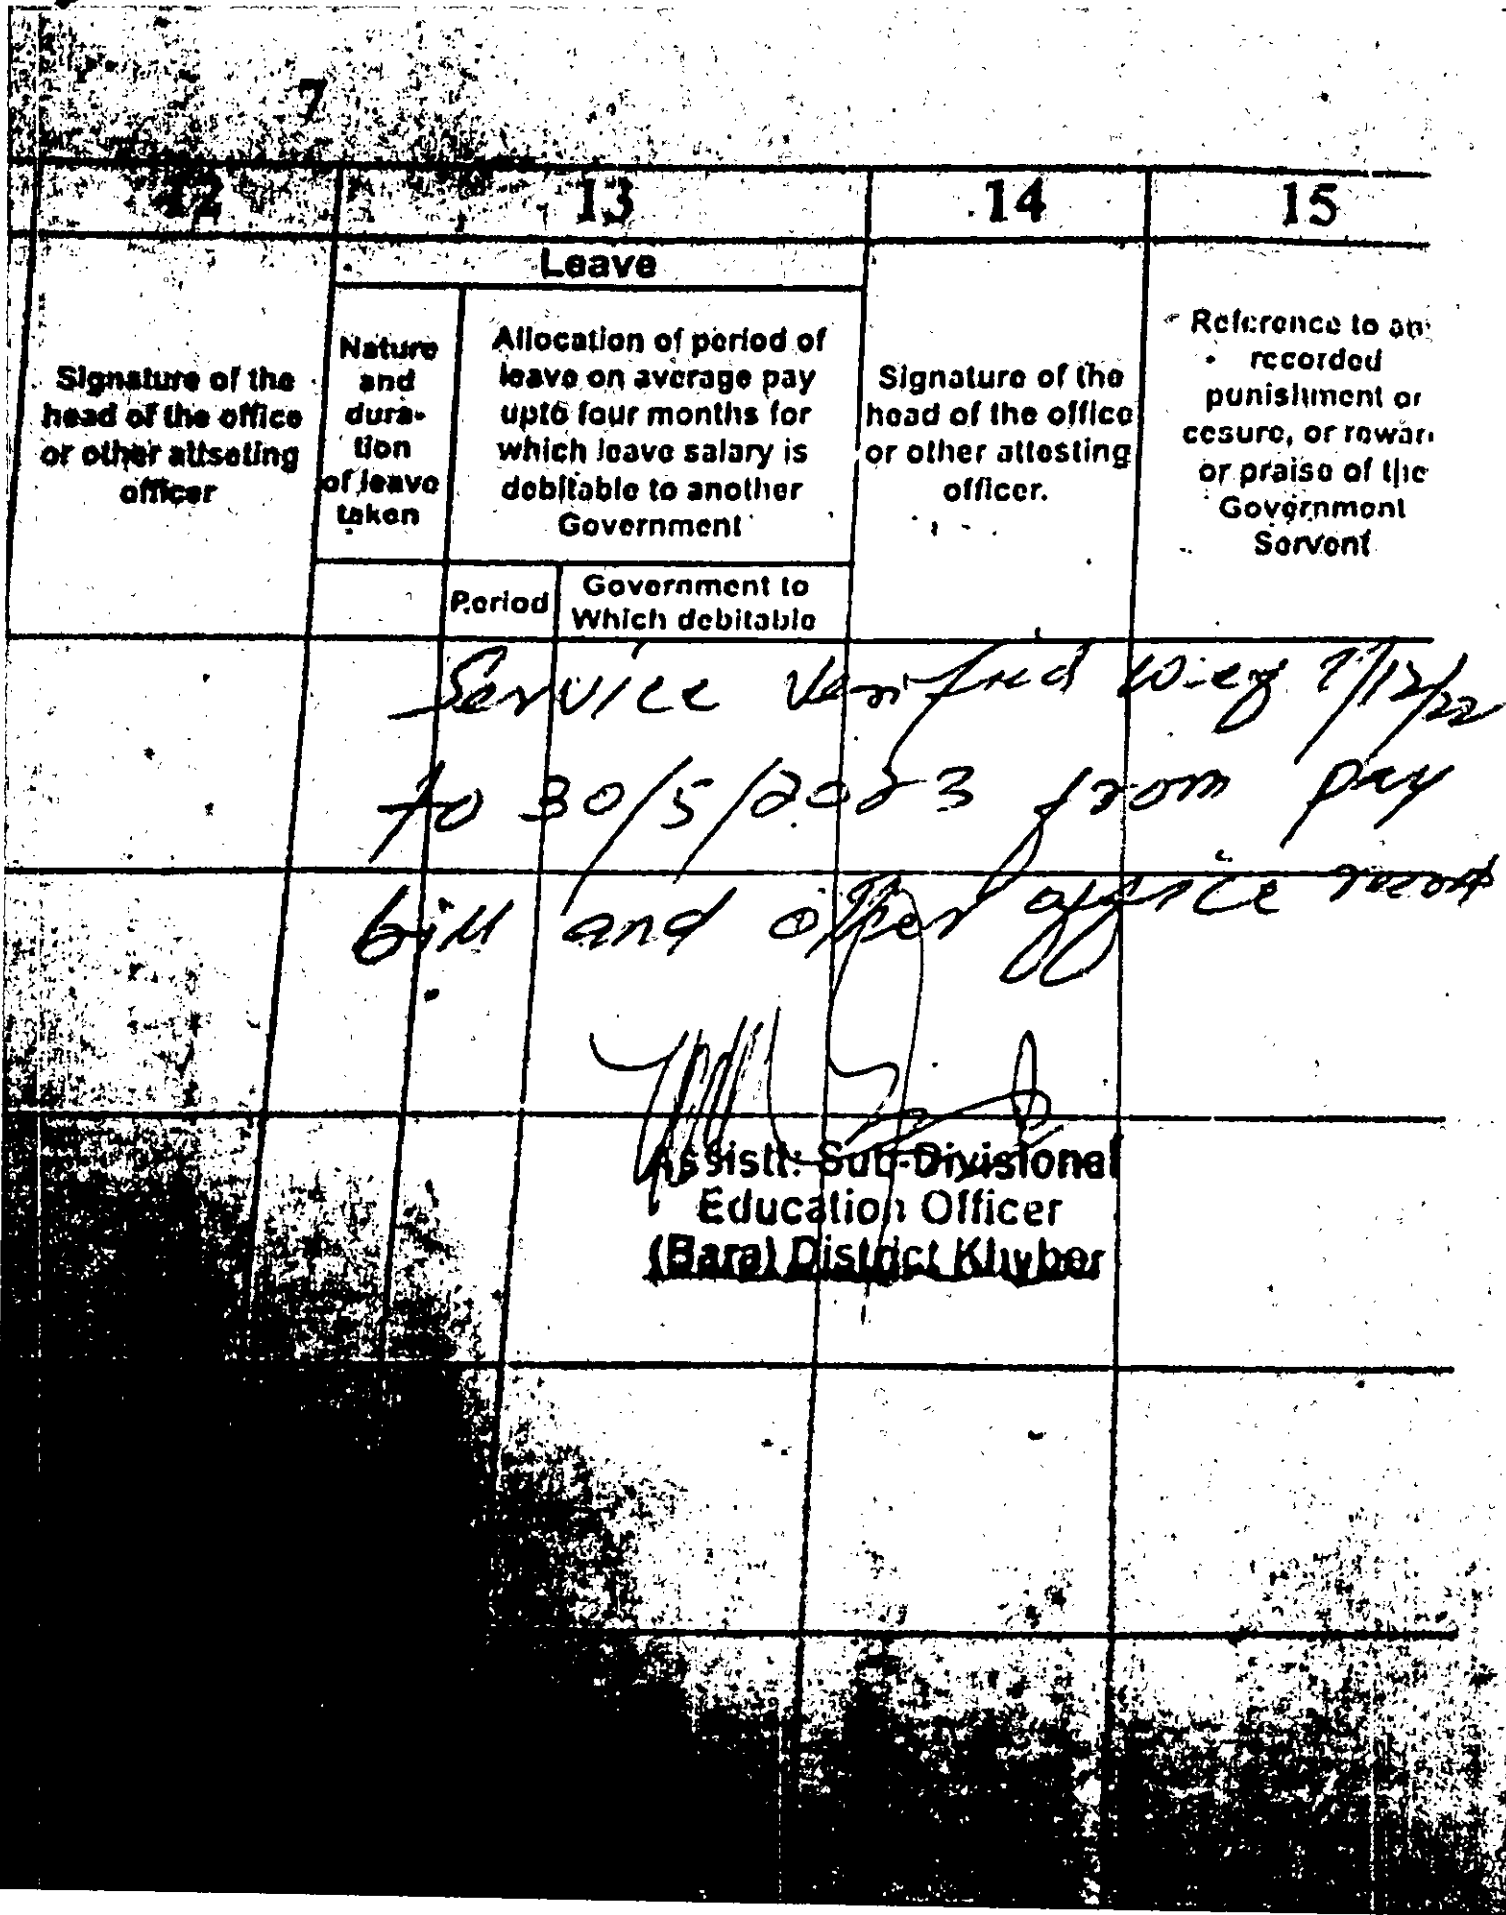 7
12 13 14 15
Leave
Signature of the
head of the office
or other attseting
officer
Nature
and
dura-
tion
of leave
taken
Allocation of period of
leave on average pay
upto four months for
which leave salary is
debitable to another
Government
Signature of the
head of the office
or other attesting
officer.
Reference to an
recorded
punishment or
cesure, or rewar
or praise of the
Government
Servent
Period
Government to
Which debitable
Service Verified w.e.f /12/22
to 30/5/2023 from pay
bill and other office record
Assistt: Sub-Divisional
Education Officer
(Bara) District Khyber